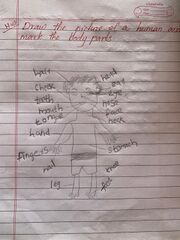 Draw the picture of a human and
mark the body parts
hair
head
cheek
eye
teeth
nose
mouth
face
tongue
neck
hand
fingers
stomach
nail
knee
leg
foot